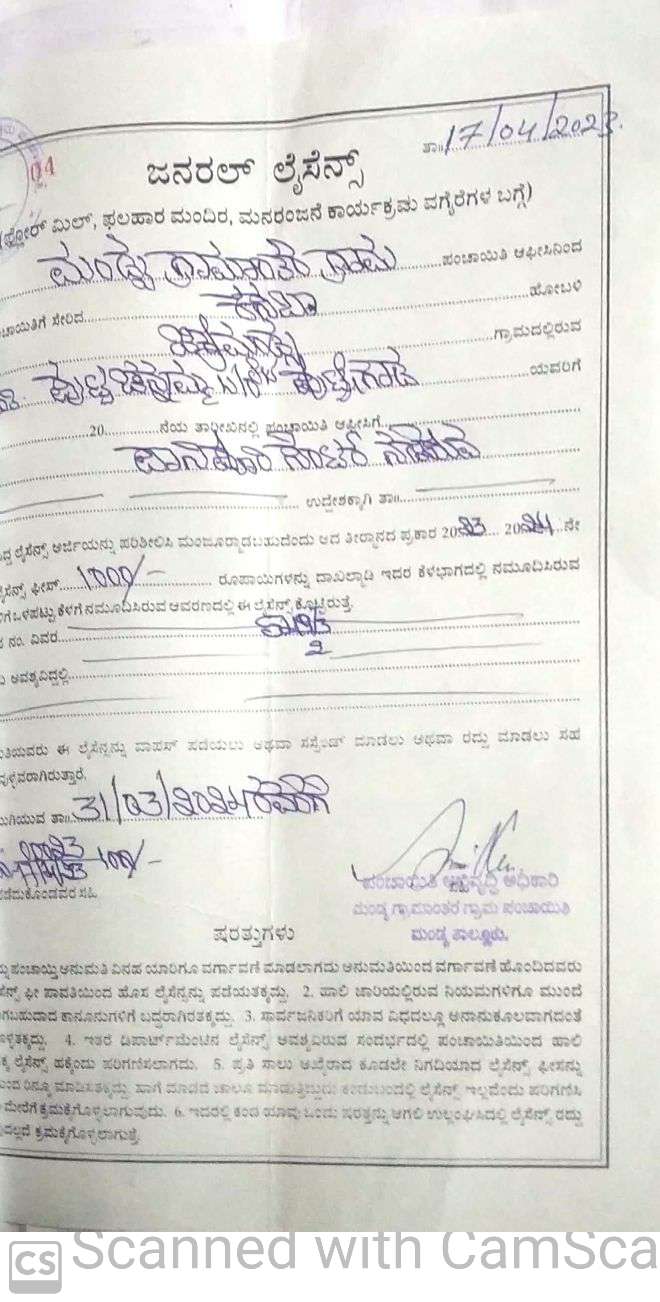 ತಾ॥ 17/04/2023.
04
ಜನರಲ್ ಲೈಸೆನ್ಸ್
(ಫ್ಲೋರ್ ಮಿಲ್, ಫಲಹಾರ ಮಂದಿರ, ಮನರಂಜನೆ ಕಾರ್ಯಕ್ರಮ ವಗೈರೆಗಳ ಬಗ್ಗೆ)
ಮಂಡ್ಯ ಗ್ರಾಮಾಂತರ ಗ್ರಾಮ ಪಂಚಾಯಿತಿ ಆಫೀಸಿನಿಂದ
ಚಾಯಿತಿಗೆ ಸೇರಿದ ಕಸಬಾ ಹೋಬಳಿ
ಗ್ರಾಮದಲ್ಲಿರುವ
ಪುಟ್ಟಚನ್ನಮ್ಮ ಯವರಿಗೆ
20 ನೆಯ ತಾರೀಖಿನಲ್ಲಿ ಪಂಚಾಯಿತಿ ಆಫೀಸಿಗೆ
ಉದ್ದೇಶಕ್ಕಾಗಿ ತಾ॥
ದ್ದ ಲೈಸೆನ್ಸ್ ಅರ್ಜಿಯನ್ನು ಪರಿಶೀಲಿಸಿ ಮಂಜೂರ್ಮಾಡಬಹುದೆಂದು ಆದ ತೀರ್ಮಾನದ ಪ್ರಕಾರ 2023 2024 ನೇ
ಲೈಸೆನ್ಸ್ ಫೀಸ್ 1000/- ರೂಪಾಯಿಗಳನ್ನು ದಾಖಲ್ಮಾಡಿ ಇದರ ಕೆಳಭಾಗದಲ್ಲಿ ನಮೂದಿಸಿರುವ
ಗೆ ಒಳಪಟ್ಟು ಕೆಳಗೆ ನಮೂದಿಸಿರುವ ಆವರಣದಲ್ಲಿ ಈ ಲೈಸೆನ್ಸ್ ಕೊಟ್ಟಿರುತ್ತೆ.
ನಂ. ವಿವರ
ಅವಶ್ಯವಿದ್ದಲ್ಲಿ
ತಿಯವರು ಈ ಲೈಸೆನ್ಸನ್ನು ವಾಪಸ್ ಪಡೆಯಲು ಅಥವಾ ಸಸ್ಪೆಂಡ್ ಮಾಡಲು ಅಥವಾ ರದ್ದು ಮಾಡಲು ಸಹ
ವುಳ್ಳವರಾಗಿರುತ್ತಾರೆ.
ಮುಗಿಯುವ ತಾ॥ 31/03/2024 ರವರೆಗೆ
100/-
ಪಡೆದುಕೊಂಡವರ ಸಹಿ
ಪಂಚಾಯಿತಿ ಅಭಿವೃದ್ಧಿ ಅಧಿಕಾರಿ
ಮಂಡ್ಯ ಗ್ರಾಮಾಂತರ ಗ್ರಾಮ ಪಂಚಾಯಿತಿ
ಮಂಡ್ಯ ತಾಲ್ಲೂಕು.
ಷರತ್ತುಗಳು
ಪಂಚಾಯ್ತಿ ಅನುಮತಿ ವಿನಹ ಯಾರಿಗೂ ವರ್ಗಾವಣೆ ಮಾಡಲಾಗದು ಅನುಮತಿಯಿಂದ ವರ್ಗಾವಣೆ ಹೊಂದಿದವರು
ಸೆನ್ಸ್ ಫೀ ಪಾವತಿಯಿಂದ ಹೊಸ ಲೈಸೆನ್ಸನ್ನು ಪಡೆಯತಕ್ಕದ್ದು. 2. ಹಾಲಿ ಜಾರಿಯಲ್ಲಿರುವ ನಿಯಮಗಳಿಗೂ ಮುಂದೆ
ಗಬಹುದಾದ ಕಾನೂನುಗಳಿಗೆ ಬದ್ಧರಾಗಿರತಕ್ಕದ್ದು. 3. ಸಾರ್ವಜನಿಕರಿಗೆ ಯಾವ ವಿಧದಲ್ಲೂ ಅನಾನುಕೂಲವಾಗದಂತೆ
ಳ್ಳತಕ್ಕದ್ದು. 4. ಇತರೆ ಡಿಪಾರ್ಟ್‌ಮೆಂಟಿನ ಲೈಸೆನ್ಸ್ ಅವಶ್ಯವಿರುವ ಸಂದರ್ಭದಲ್ಲಿ ಪಂಚಾಯಿತಿಯಿಂದ ಹಾಲಿ
ಲೈಸೆನ್ಸ್ ಹಕ್ಕೆಂದು ಪರಿಗಣಿಸಲಾಗದು. 5. ಪ್ರತಿ ಸಾಲು ಆಖೈರಾದ ಕೂಡಲೇ ನಿಗದಿಯಾದ ಲೈಸೆನ್ಸ್ ಫೀಸನ್ನು
ರಿನ್ಯೂ ಮಾಡಿಸತಕ್ಕದ್ದು. ಹಾಗೆ ಮಾಡದೆ ಚಾಲೂ ಮಾಡುತ್ತಿರುವುದು ಕಂಡುಬಂದಲ್ಲಿ ಲೈಸೆನ್ಸ್ ಇಲ್ಲವೆಂದು ಪರಿಗಣಿಸಿ
ಮೇರೆಗೆ ಕ್ರಮಕೈಗೊಳ್ಳಲಾಗುವುದು. 6. ಇದರಲ್ಲಿ ಕಂಡ ಯಾವುದೊಂದು ಷರತ್ತನ್ನು ಆಗಲಿ ಉಲ್ಲಂಘಿಸಿದಲ್ಲಿ ಲೈಸೆನ್ಸ್ ರದ್ದು
ದಲ್ಲದೆ ಕ್ರಮಕೈಗೊಳ್ಳಲಾಗುತ್ತೆ.
CS Scanned with CamSca